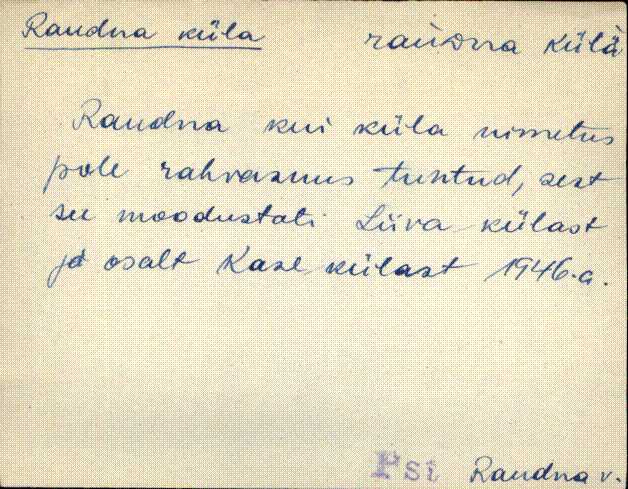 Raudna küla raùᴅna külä
Raudna kui küla nimetus
pole rahvasuus tuntud, sest
see moodustati Liiva külast
ja osalt Kase külast 1946.a.
Psi Raudna v.